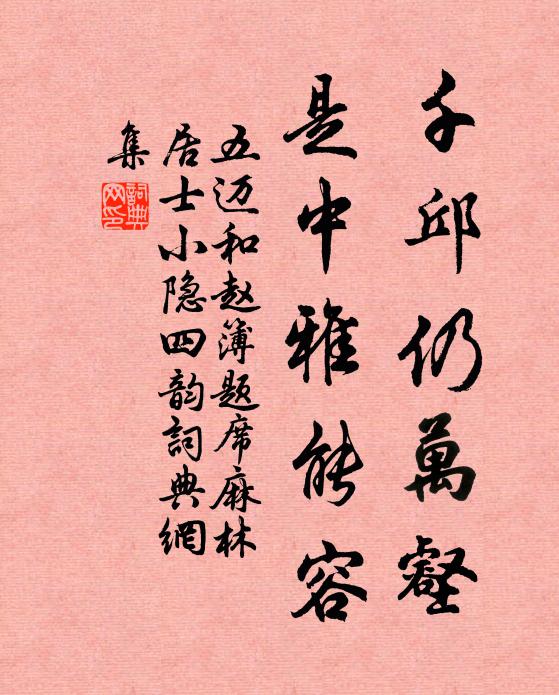 千邱仍萬壑
是中雅能容
五迈和赵簿题席麻林
居士小隐四韵詞典網
集
詞典
网印